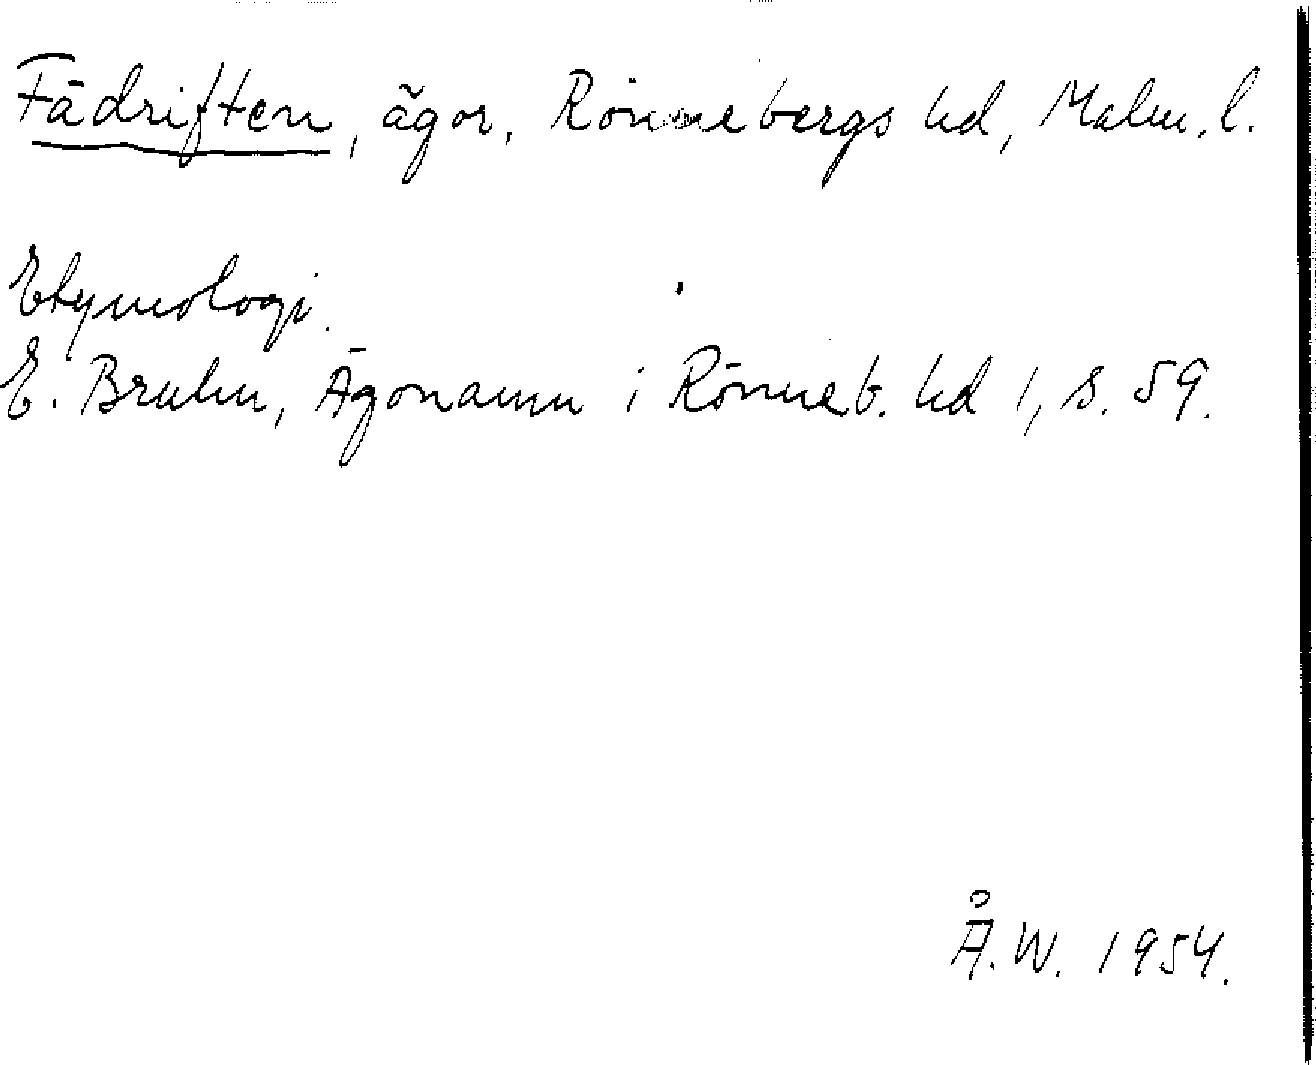 Fädriften, ägor, Rönnebergs hd, Malm. l.
Etymologi.
E. Bruhn, Ägonamn i Rönneb. hd 1, s. 59.
Å. W. 1954.